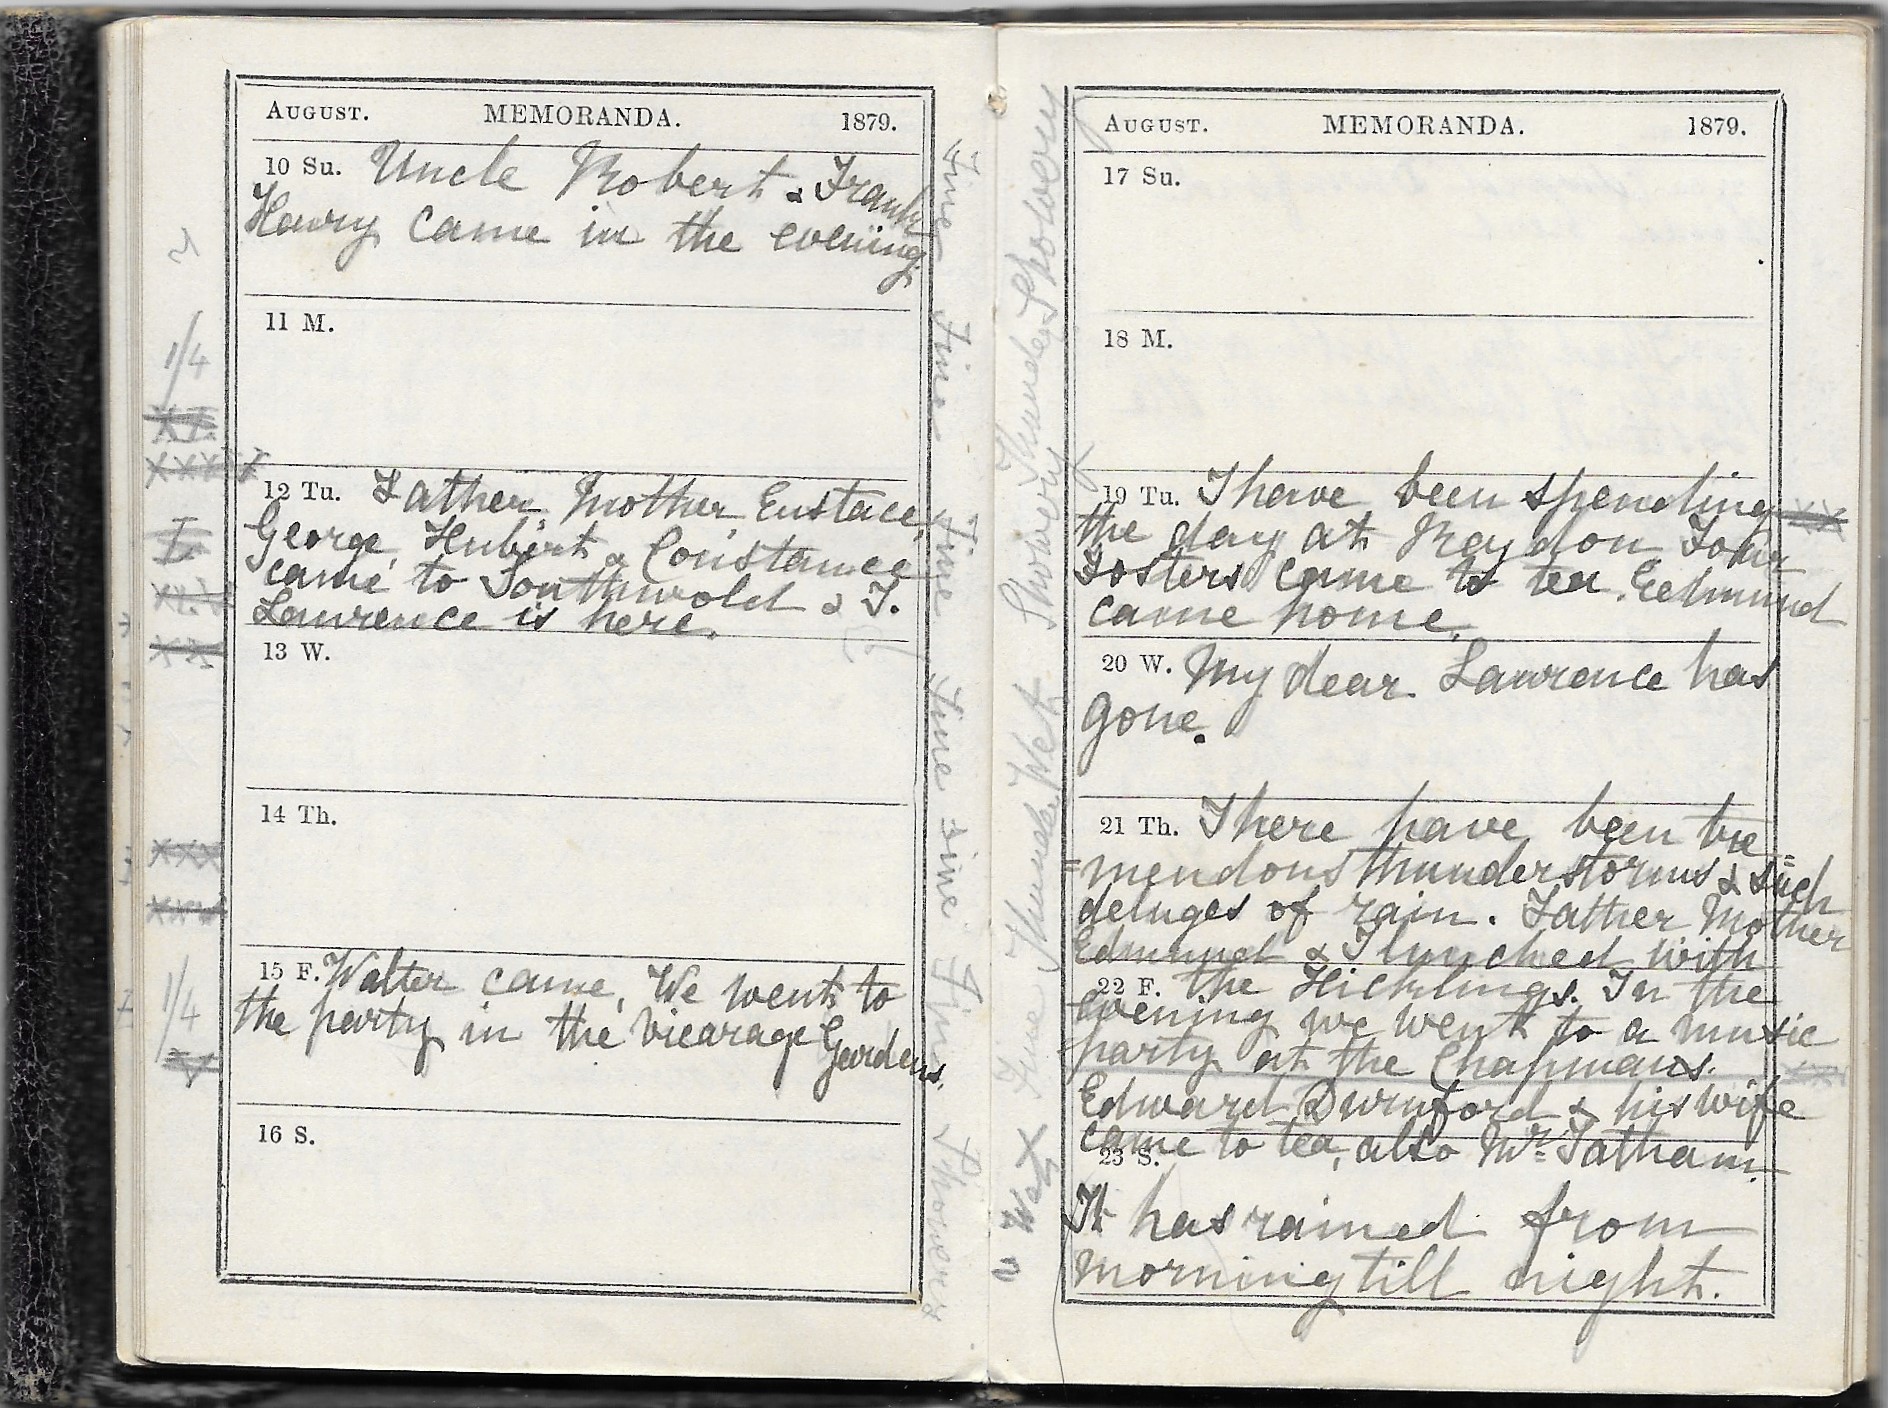 AUGUST. MEMORANDA. 1879.
10 Su. Uncle Robert & Frank
Harry came in the evening
11 M.
12 Tu. Father, Mother, Eustace,
George, Hubert & Constance
came to Southwold & T.
Lawrence is here.
13 W.
14 Th.
15 F. Walter came. We went to
the party in the Vicarage Gardens.
16 S.
1/4
XI.
XXX
I
XX
XXX
1/4
V
Fine
Fine
Fine
Fine
Fine
Fine
Showery
AUGUST. MEMORANDA. 1879.
17 Su.
18 M.
19 Tu. I have been spending
the day at Reydon. Four
Fosters came to tea. Edmund
came home.
20 W. My dear Lawrence has
gone.
21 Th. There have been tre
=mendous thunderstorms & such
deluges of rain. Father Mother
Edmund & I lunched with
22 F. the Hicklings. In the
evening we went to a music
party at the Chapmans.
Edward Durnford & his wife
came to tea, also Mr. Tatham.
23 S.
It has rained from
morning till night.
Showery
Thunder
Showery
Wet
Thunder
Fine
Wet
XX